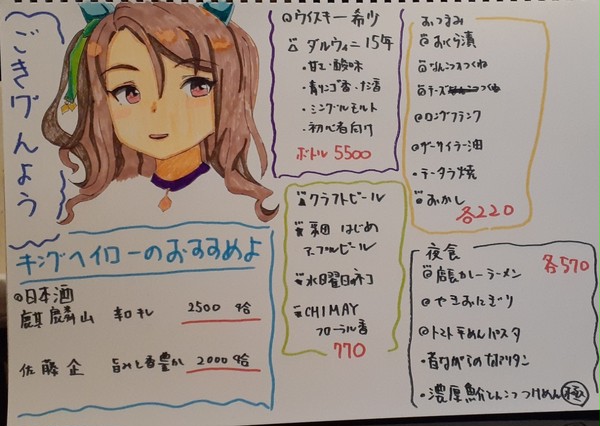 ごきげんよう
キングヘイローのおすすめよ
◎日本酒
麒麟山 辛口キレ 2500
佐藤企 旨みと香豊か 2000
◎ウイスキー 希少
ダルウィニー 15年
・甘とい酸味
・青リンゴ香・た香
・シングルモルト
・初心者向け
ボトル 5500
クラフトビール
軽団 はじめ
アップルビール
水曜日のネコ
CHIMAY
フローラル香
770
おつまみ
おくら漬
なんこつつくね
チーズつくね
◎ロングフランク
ザーサイラー油
・チータラ焼
おかし
各220
夜食
各570
◎店長カレーラーメン
◎やきおにぎり
◎トマト手めんパスタ
・昔ながらのナポリタン
・濃厚魚介とんこつつけめん 極